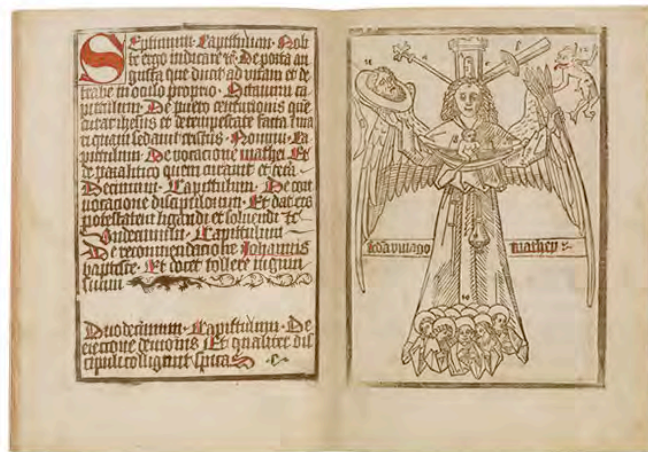 Septimum · Capittulum · Noli
te ergo indicare rc · De porta an
gusta que ducit ad vitam et de
trabe in oculo proprio · Octavum ca
pittulum · De puero centurionis que
curat ihesus et de tempestate facta i ma
ri quam sedavit cristus · Nonum · Ca
pittulum · De vocacione mathei Et
de paralitico quem curavit et cetera
Decimum · Capittulum · De con
vocacione discipulorum · Et dat eis
potestatem ligandi et solvendi rc
Undecimum · Capittulum
De recommendacione Johannis
baptiste · Et docet tollere iugum
suum
Duodecimum · Capittulum · De
eiectione demonis Et qualiter dis
cipuli colligerunt spicas
10
Seda ymago mathey